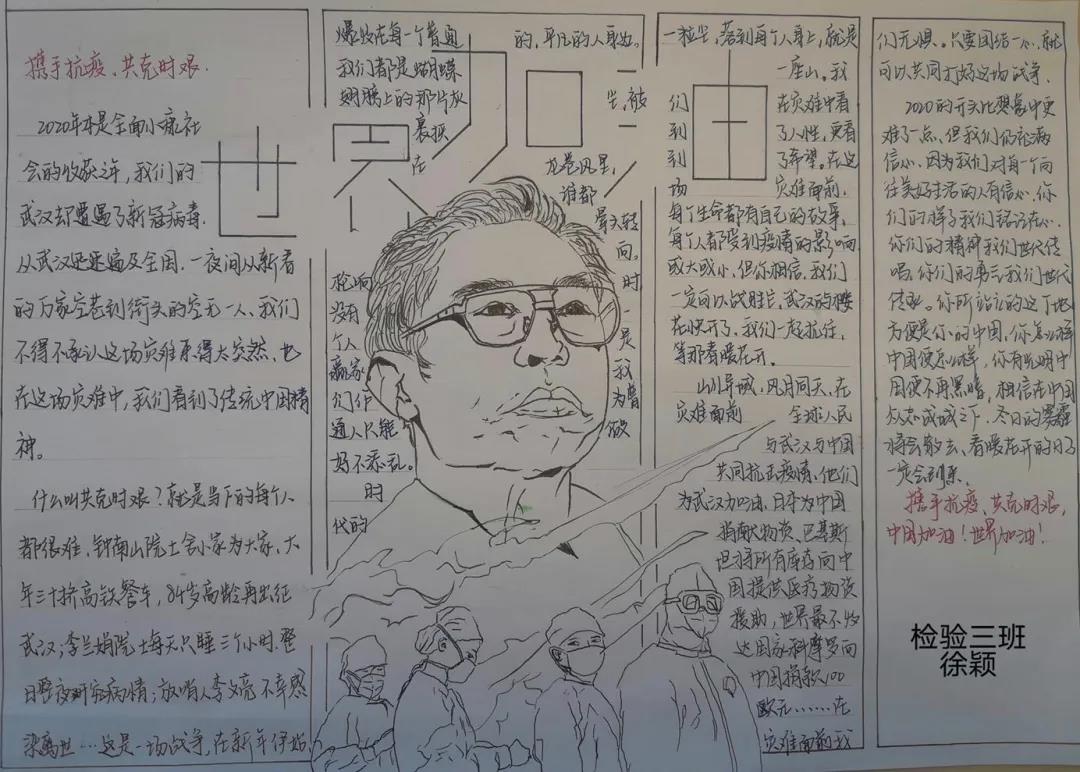 携手抗疫、共克时艰.
2020年本是全面小康社
会的收获之年,我们的
武汉却遭遇了新冠病毒.
从武汉迅速遍及全国.一夜间从新春
的万家空巷到街头的空无一人、我们
不得不承认这场灾难来得太突然,也
在这场灾难中,我们看到了传统中国精
神。
什么叫共克时艰?就是当下的每个人
都很难、钟南山院士舍小家为大家,大
年三十挤高铁餐车,84岁高龄再出征
武汉;李兰娟院士每天只睡三个小时.整
日整夜研究病情;放哨人李文亮不幸感
染离世…这是一场战争,在新年伊始,
世界加油
爆发在每一个普通 的,平凡的人身边.
我们都是蝴蝶
翅膀上的那片灰 尘,被
裹挟
在 龙卷风里,
谁都
转
向。
枪响 时
没有 一
个人 是
赢家 我
们作 为普
通人只能 做
好不添乱.
时
代的
一粒尘,落到每个人身上,就是
一座山。我
们 在灾难中看
到 了人性,更看
到 了希望。在这
场 灾难面前,
每个生命都有自己的故事,
每个人都受到疫情的影响
或大或小,但你相信,我们
一定可以战胜它,武汉的樱
花快开了,我们一起抗住,
等那春暖花开。
山川异域,风月同天,在
灾难面前 全球人民
与武汉与中国
共同抗击疫情,他们
为武汉加油,日本为中国
捐献物资,巴基斯
坦将所有库存向中
国提供医疗物资
援助,世界最不发
达国家科摩罗向
中国捐款100
欧元……在
灾难面前我
们无惧。只要团结一心,就
可以共同打好这场战争.
2020的开头比想象中更
难了一点、但我们仍充满
信心,因为我们对每个向
往美好生活的人有信心,你
们的样子我们铭记在心.
你们的精神我们世代传
唱,你们的勇气我们世代
传承。你所站立的这个地
方便是你的中国,你怎么样
中国便怎么样,你有光明中
国便不再黑暗,相信在中国
众志成城之下.冬日的雾霾
将会散去、春暖花开的日子
一定会到来.
携手抗疫、共克时艰,
中国加油!世界加油!
检验三班
徐颖